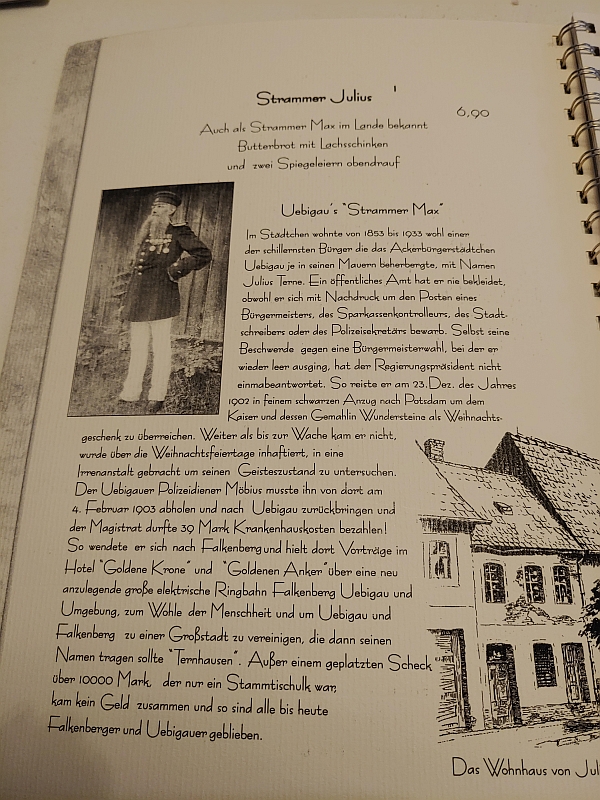 Strammer Julius
6,90
Auch als Strammer Max im Lande bekannt
Butterbrot mit Lachsschinken
und zwei Spiegeleiern obendrauf
Uebigau's "Strammer Max"
Im Städtchen wohnte von 1853 bis 1933 wohl einer
der schillernsten Bürger die das Ackerbürgerstädtchen
Uebigau je in seinen Mauern beherbergte, mit Namen
Julius Terne. Ein öffentliches Amt hat er nie bekleidet,
obwohl er sich mit Nachdruck um den Posten eines
Bürgermeisters, des Sparkassenkontrolleurs, des Stadt-
schreibers oder des Polizeisekretärs bewarb. Selbst seine
Beschwerde gegen eine Bürgermeisterwahl, bei der er
wieder leer ausging, hat der Regierungspräsident nicht
einmabeantwortet. So reiste er am 23. Dez. des Jahres
1902 in feinem schwarzen Anzug nach Potsdam um dem
Kaiser und dessen Gemahlin Wundersteine als Weihnachts-
geschenk zu überreichen. Weiter als bis zur Wache kam er nicht,
wurde über die Weihnachtsfeiertage inhaftiert, in eine
Irrenanstalt gebracht um seinen Geisteszustand zu untersuchen.
Der Uebigauer Polizeidiener Möbius musste ihn von dort am
4. Februar 1903 abholen und nach Uebigau zurückbringen und
der Magistrat durfte 39 Mark Krankenhauskosten bezahlen!
So wendete er sich nach Falkenberg und hielt dort Vorträige im
Hotel "Goldene Krone" und "Goldenen Anker" über eine neu
anzulegende große elektrische Ringbahn Falkenberg Uebigau und
Umgebung, zum Wohle der Menschheit und um Uebigau und
Falkenberg zu einer Großstadt zu vereinigen, die dann seinen
Namen tragen sollte "Ternhausen". Außer einem geplatzten Scheck
über 10000 Mark, der nur ein Stammtischulk war,
kam kein Geld zusammen und so sind alle bis heute
Falkenberger und Uebigauer geblieben.
Das Wohnhaus von Jul